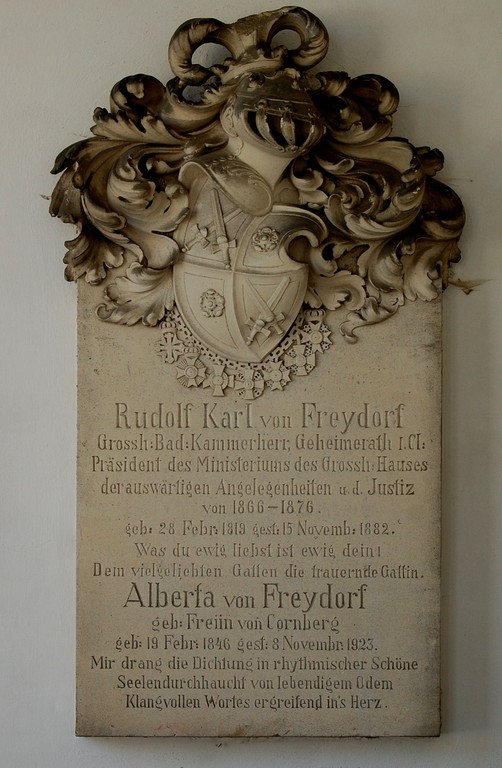 Rudolf Karl von Freydorf
Grossh: Bad: Kammerherr, Geheimerath I. Cl:
Präsident des Ministeriums des Grossh: Hauses
der auswärtigen Angelegenheiten u. d. Justiz
von 1866–1876.
geb: 28 Febr: 1819 gest: 15 Novemb: 1882.
Was du ewig liebst ist ewig dein!
Dem vielgeliebten Gatten die trauernde Gattin.
Alberta von Freydorf
geb: Freiin von Cornberg
geb: 19 Febr: 1846 gest: 8 Novembr: 1923.
Mir drang die Dichtung in rhythmischer Schöne
Seelendurchhaucht von lebendigem Odem
Klangvollen Wortes ergreifend in's Herz.